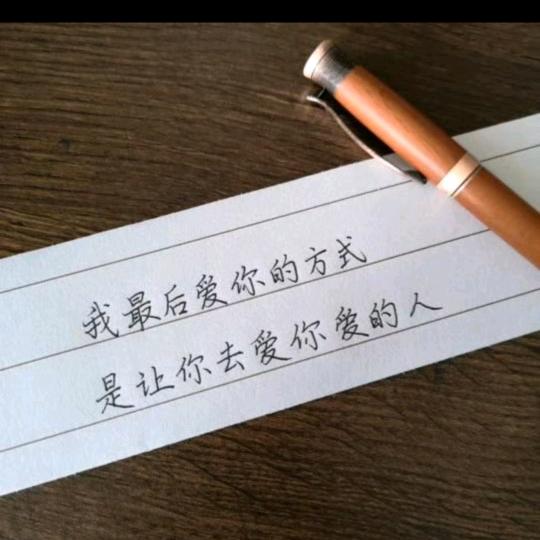 我最后爱你的方式
是让你去爱你爱的人